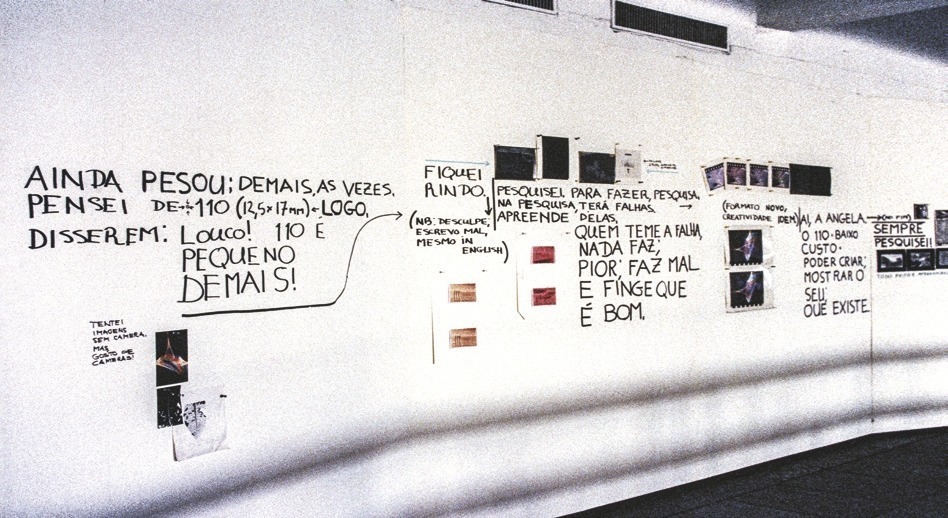 AINDA PESOU; DEMAIS, AS VEZES.
PENSEI DE 110 (12,5×17mm) LOGO,
DISSEREM: LOUCO! 110 E
PEQUENO
DEMAIS!
TENTEI
IMAGENS
SEM CAMERA,
MAS
GOSTO DE
CAMERAS!
FIQUEI
RINDO,
(NB: DESCULPE,
ESCREVO MAL,
MESMO IN
ENGLISH)
PESQUISEI. PARA FAZER, PESQUISA,
NA PESQUISA, TERÁ FALHAS.
APREENDE DELAS,
QUEM TEME A FALHA,
NADA FAZ;
PIOR; FAZ MAL
E FINGE QUE
É BOM.
(FORMATO NOVO,
CREATIVIDADE IDEM)
AI, A ANGELA
O 110-BAIXO
CUSTO-
PODER CRIAR;
MOSTRAR O
SEU;
QUE EXISTE.
SEMPRE
PESQUISEI!